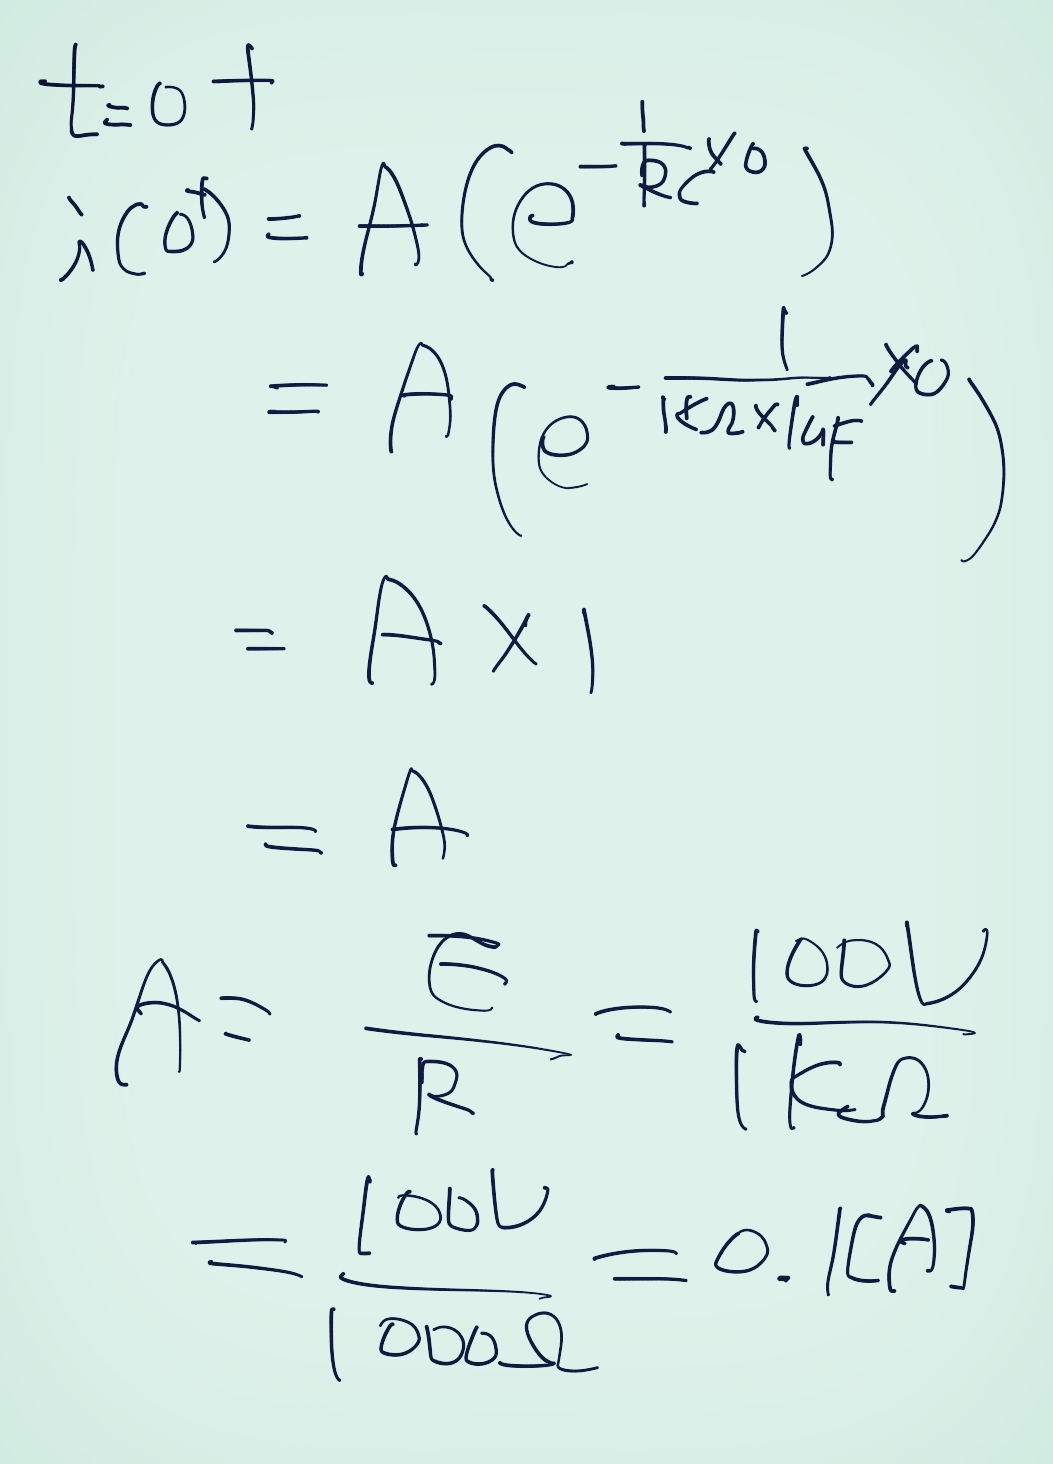 t=0+
i(0⁺) = A(e^(-1/RC × 0))
= A(e^(-1/(1KΩ×1uF) × 0))
= A × 1
= A
A = E/R = 100V/1kΩ
= 100V/1000Ω = 0.1[A]